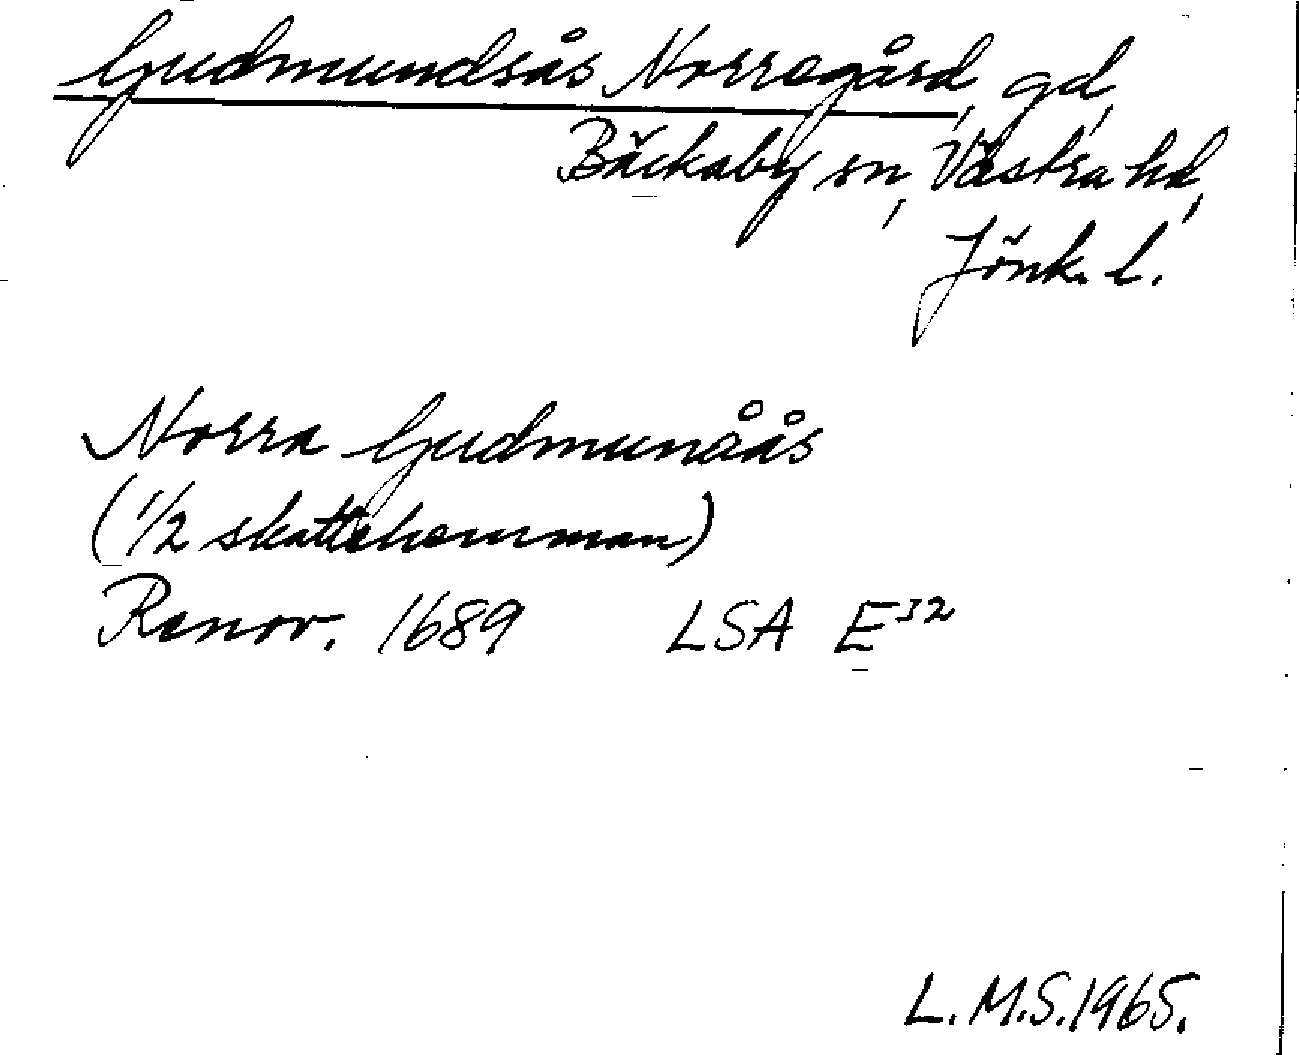 Gudmundsås Norregård, gd,
Bäckaby sn, Västra hd,
Jönk. l.
Norra Gudmunåås
(1/2 skattehemman)
Renov. 1689 LSA E32
L.M.S.1965.